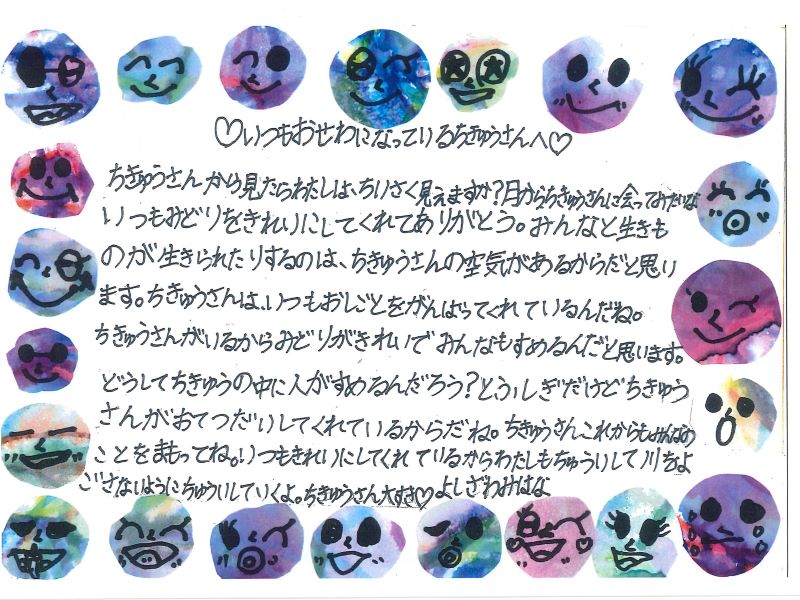 ♡いつもおせわになっているちきゅうさんへ♡
ちきゅうさんから見たらわたしは、ちいさく見えますか?月からちきゅうさんに会ってみたいな
いつもみどりをきれいにしてくれてありがとう。みんなと生きも
のが生きられたりするのは、ちきゅうさんの空気があるからだと思い
ます。ちきゅうさんは、いつもおしごとをがんばってくれているんだね。
ちきゅうさんがいるからみどりがきれいでみんなもすめるんだと思います。
どうしてちきゅうの中に人がすめるんだろう?とふしぎだけどちきゅう
さんがおてつだいしてくれているからだね。ちきゅうさんこれからもみんなの
ことをまもってね。いつもきれいにしてくれているからわたしもちゅういして川をよ
ごさないようにちゅういしていくよ。ちきゅうさん大すき♡よしざわみはな